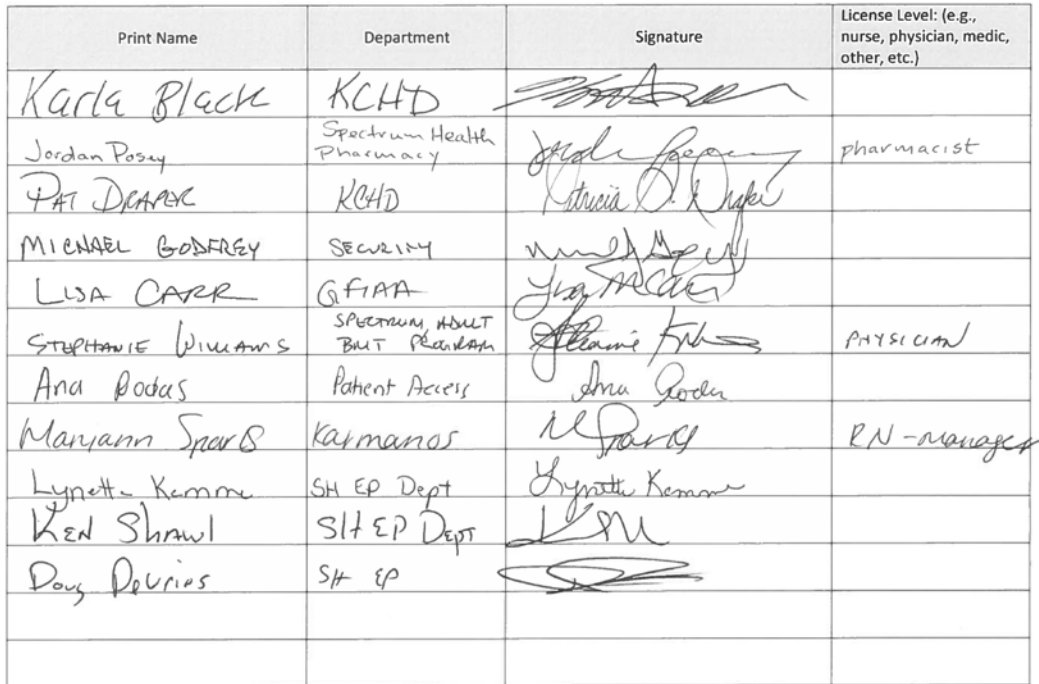 Print Name Department Signature License Level: (e.g.,
nurse, physician, medic,
other, etc.)
Karla Black KCHD
Jordan Posey Spectrum Health
Pharmacy pharmacist
PAT DRAPER KCHD Patricia D. Draper
MICHAEL GODFREY SECURITY
LISA CARR GFIAA Lisa M Carr
STEPHANIE WILLIAMS SPECTRUM ADULT
BMT PROGRAM PHYSICIAN
Ana Patient Access Ana
Maryann Sparks Karmanos M Sparks RN-manager
Lynette Kemme SH EP Dept Lynette Kemme
KEN SHAWL SH EP DEPT
Doug DeVries SH EP